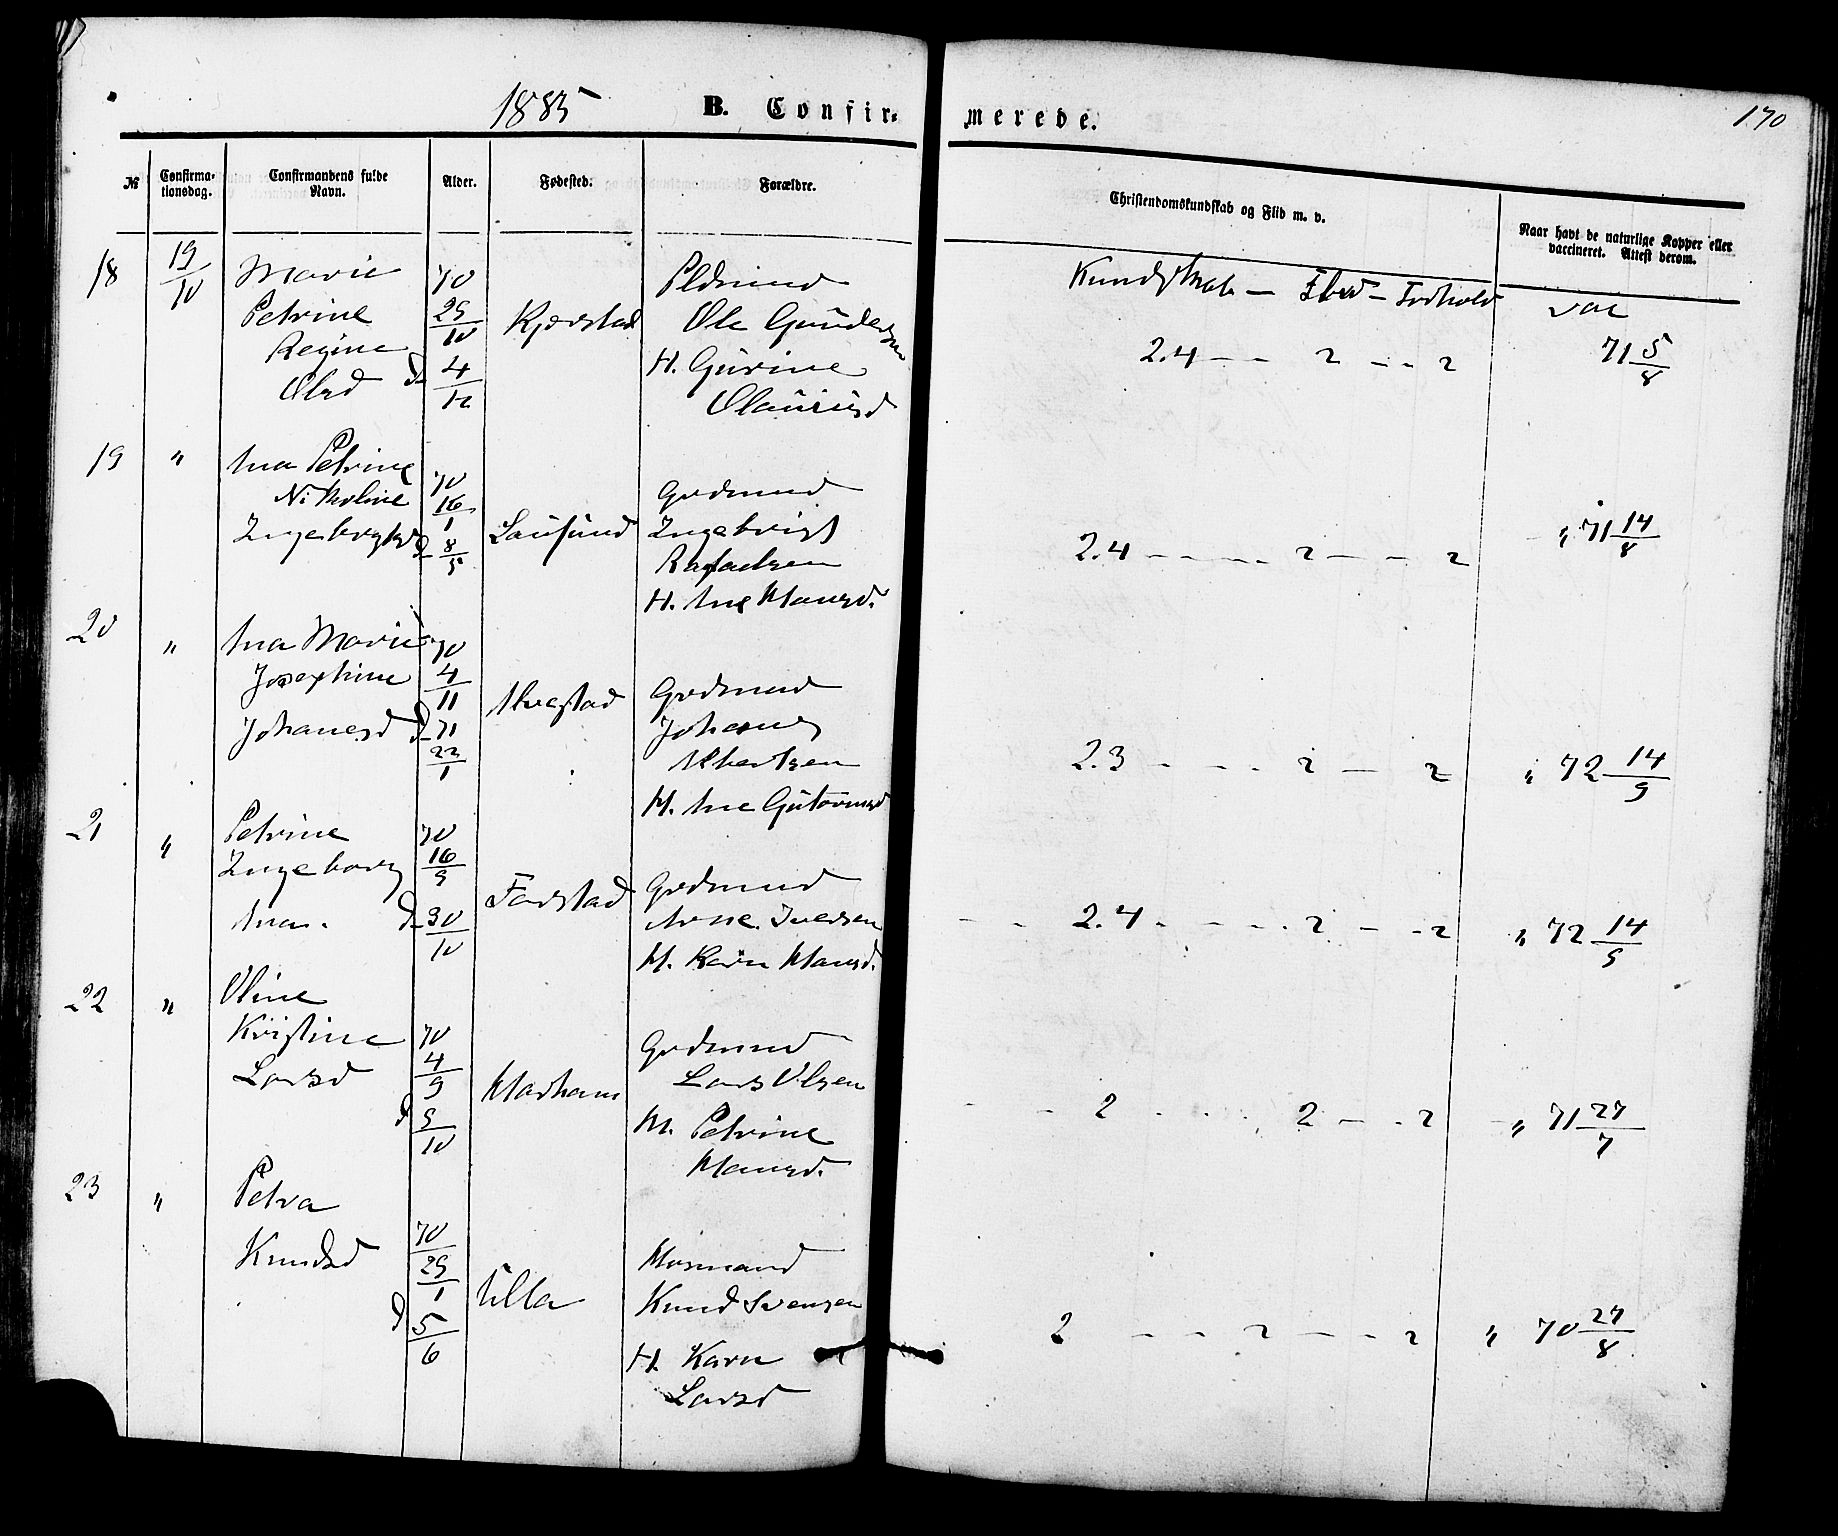 1885 B. Confirmerede. 170
№ Confirmationsdag. Confirmandens fulde Navn. Alder. Fødested. Forældre. Christendomskundskab og Flid m. v. Naar havt de naturlige Kopper eller vaccineret. Attest derom.
Kundskab — Flid — Forhold vac
18 19/10 Marie 70 Pldmend
Petrine 29/10 Kjerstad Ole Gundersen
Regine H. Gurine 2.4 — — 2 — — 2 71 5/8
Olsd d 4/12 Olaususd
19 " Ana Petrine 70 Grdmend
Nikoline 16/1 Lausund Ingebrigt
Ingebrgtsd d 8/5 Rafaelsen 2.4 — — 2 — — 2 " 71 14/8
H. Ane Hansd.
20 " Ana Marie 70
Josephine 4/11 Alvestad Grdmend
Johanesd d 71 Johanes
22/1 Albertsen 2.3 — — 2 — 2 " 72 14/9
H. Ane Gutormsd
21 " Petrine 70
Ingeborg 16/9 Farstad Grdmend
Ana. d 30/10 Arne Iversen 2.4 — — 2 — — 2 " 72 14/9
H. Karn Hansd.
22 " Oline
Kristine 70 Grdmend
Larsd 4/9 Harham Lars Olsen
d 9/10 H. Petrine 2 — — 2 — — 2 " 71 27/7
Hansd.
23 " Petra
Knudsd 70 Husmand
29/1 Ulla Knud Svensen
d 5/6 H. Karn 2 — — 2 — — 2 " 70 27/8
Larsd